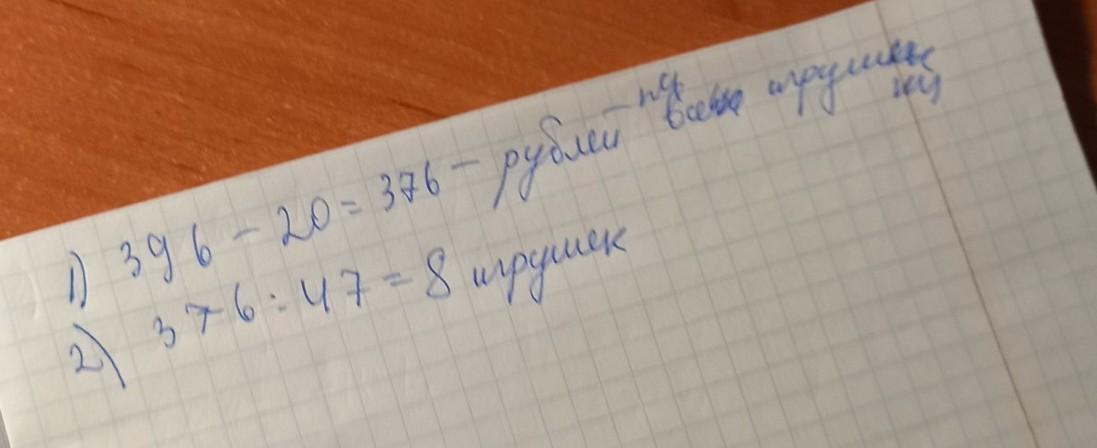 1) 396 - 20 = 376 - рублей - на все игрушки
2) 376 : 47 = 8 игрушек